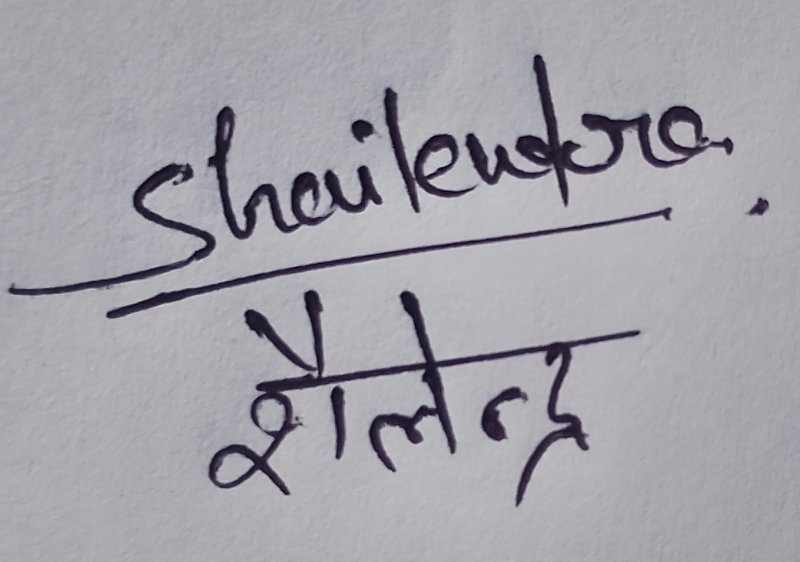 Shailendra.
शैलेन्द्र